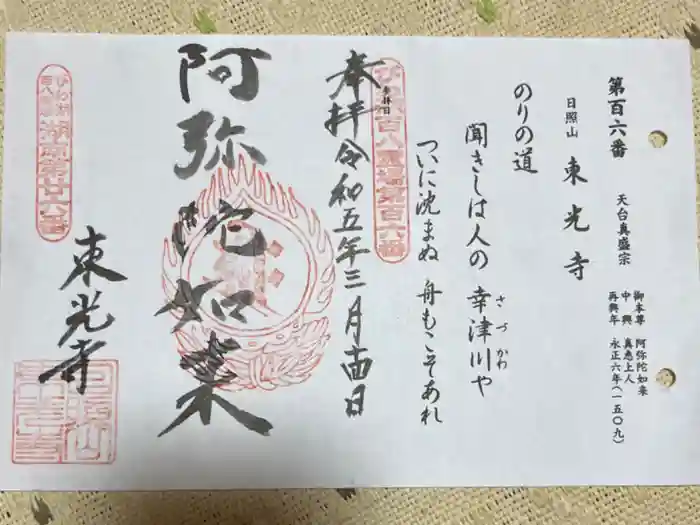 第百六番 天台真盛宗
御本尊 阿弥陀如来
中興 真恵上人
再興年 永正六年(一五〇九)
日照山 東光寺
のりの道
聞きしは人の 幸津川や
さづかわ
ついに沈まぬ 舟もこそあれ
びわ湖百八霊場第百六番
参拝日
奉拝 令和五年三月十四日
阿弥陀如来
びわ湖百八霊場 湖南第廿六番
東光寺